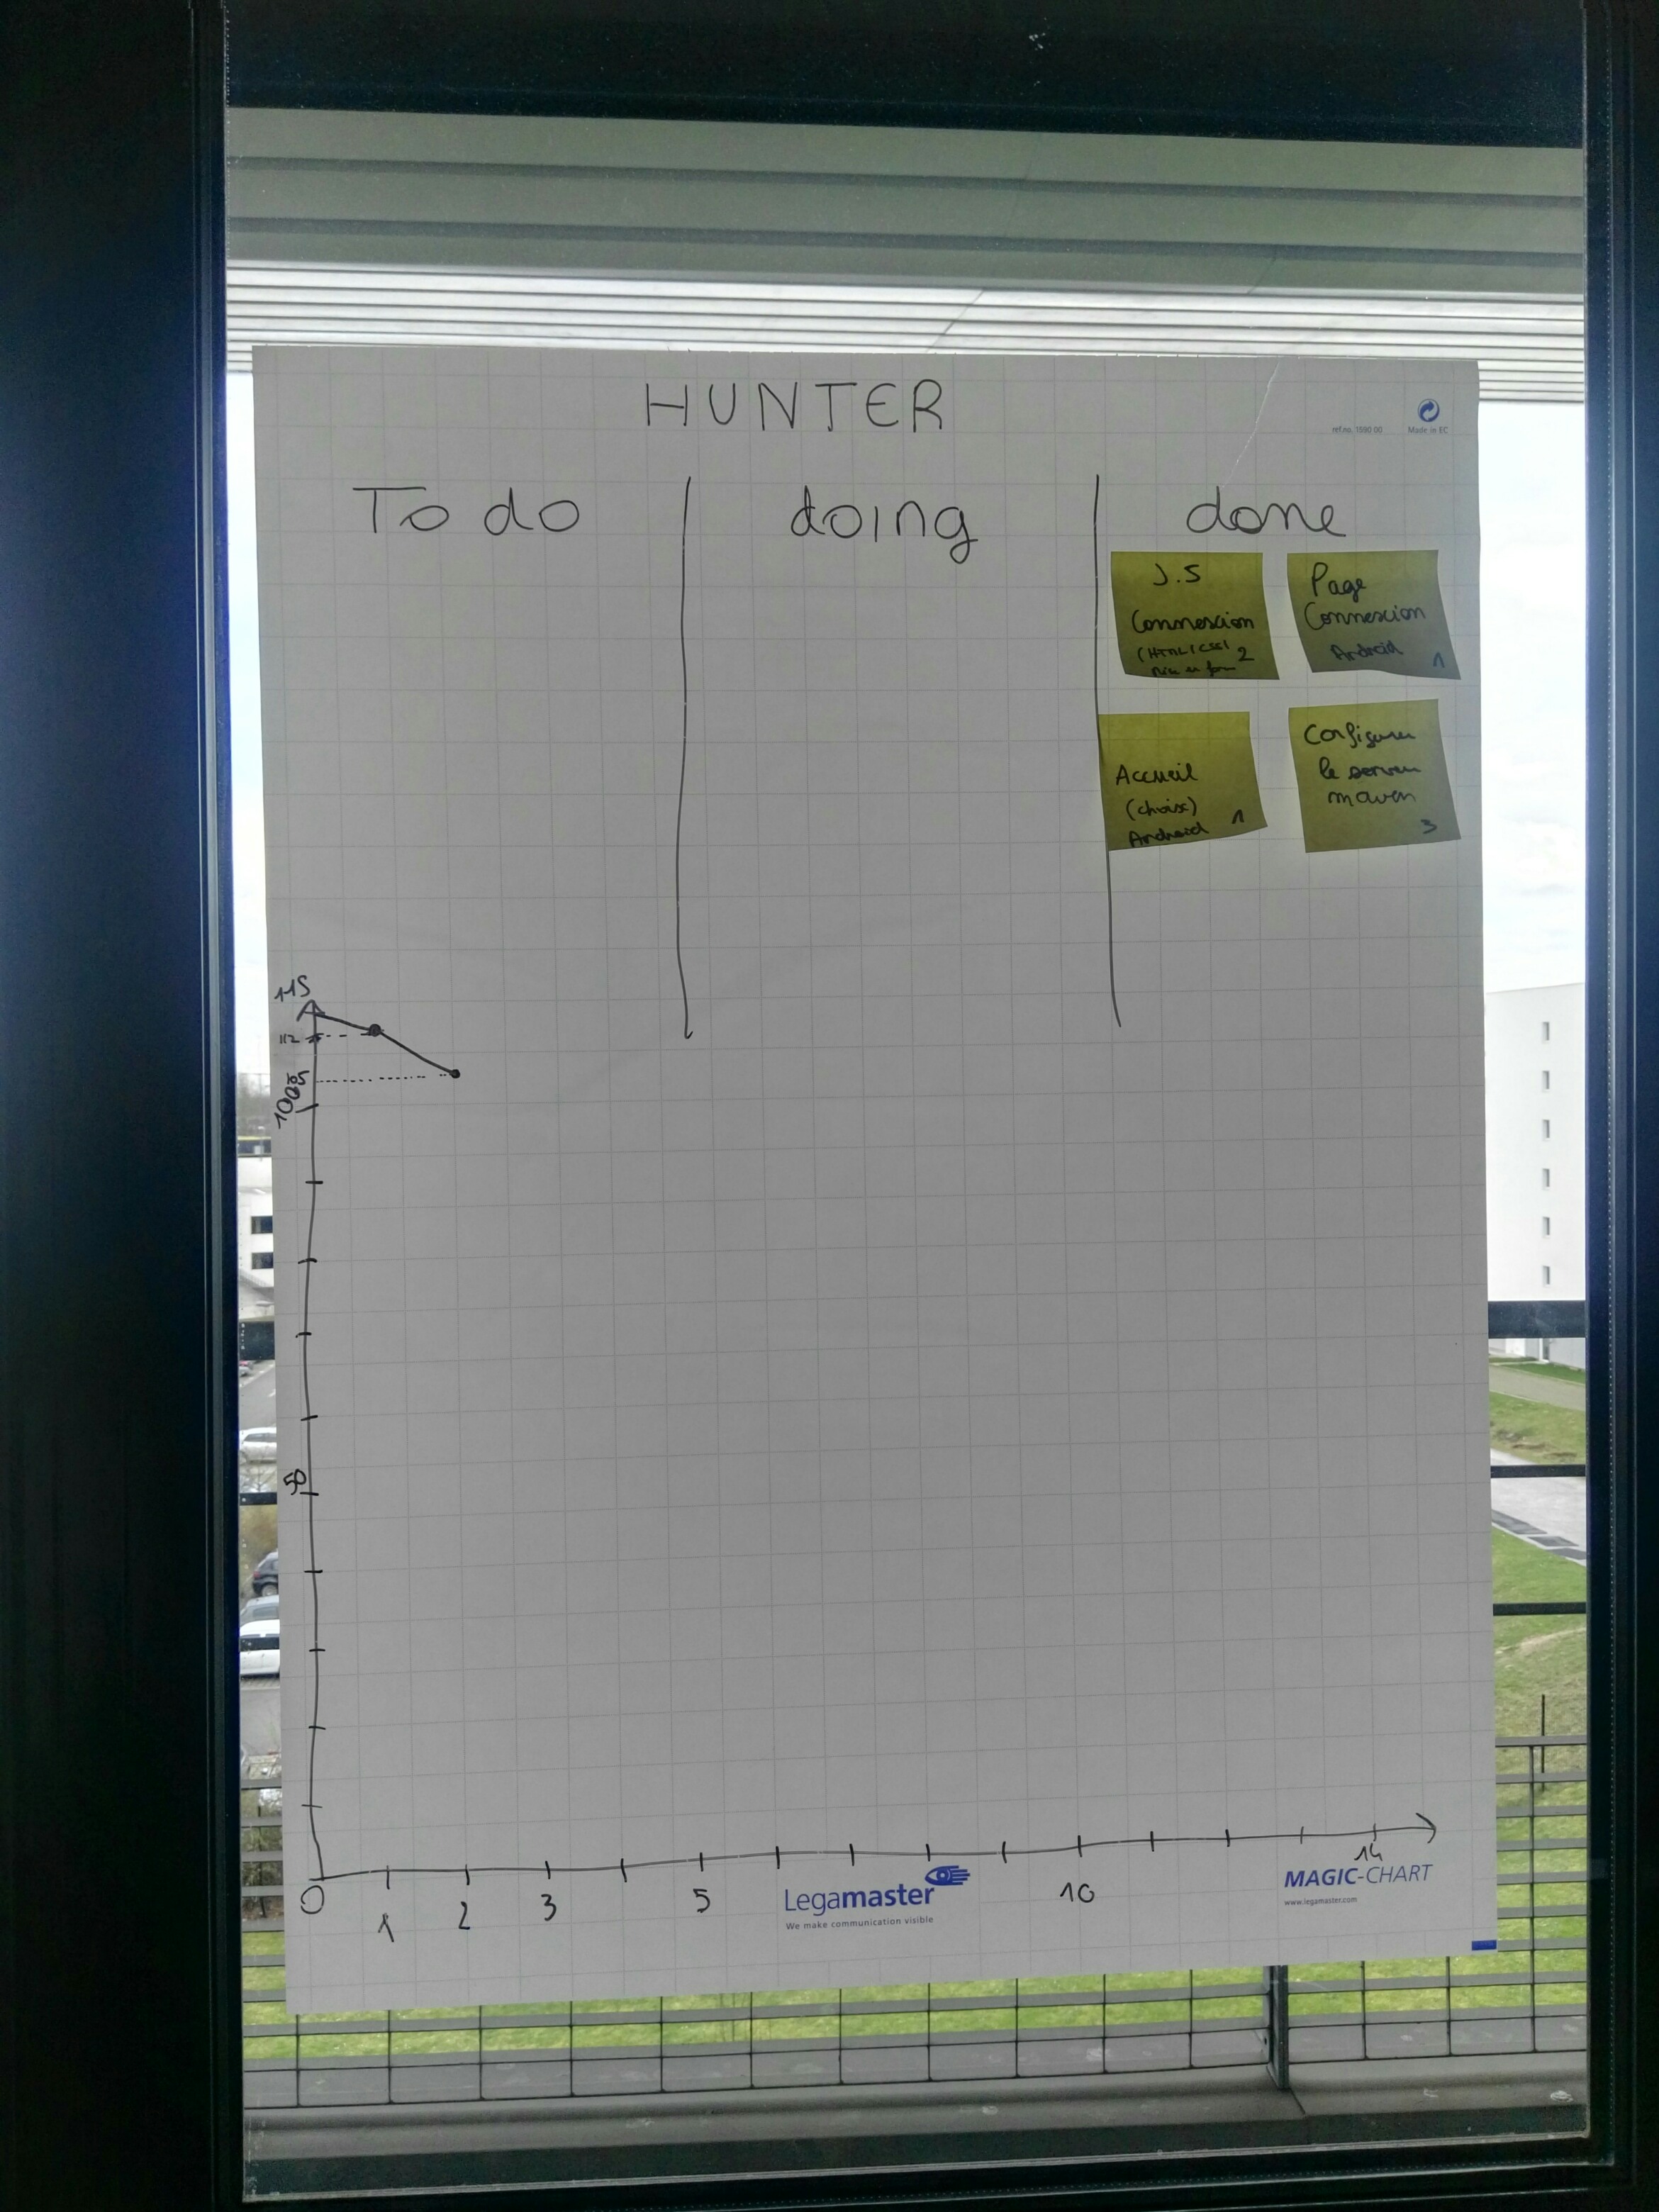 HUNTER
ref.no. 1590 00
Made in EC
To do
doing
done
J.S
Connexion
(HTML/CSS)
2
Page
Connexion
Android
1
Accueil
(choix)
1
Android
Configurer
le serveur
maven
3
115
112
100
50
0
1
2
3
5
10
14
Legamaster
We make communication visible
MAGIC-CHART
www.legamaster.com